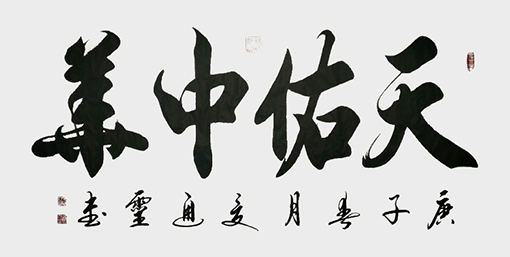 天佑中華
庚子春月通靈書